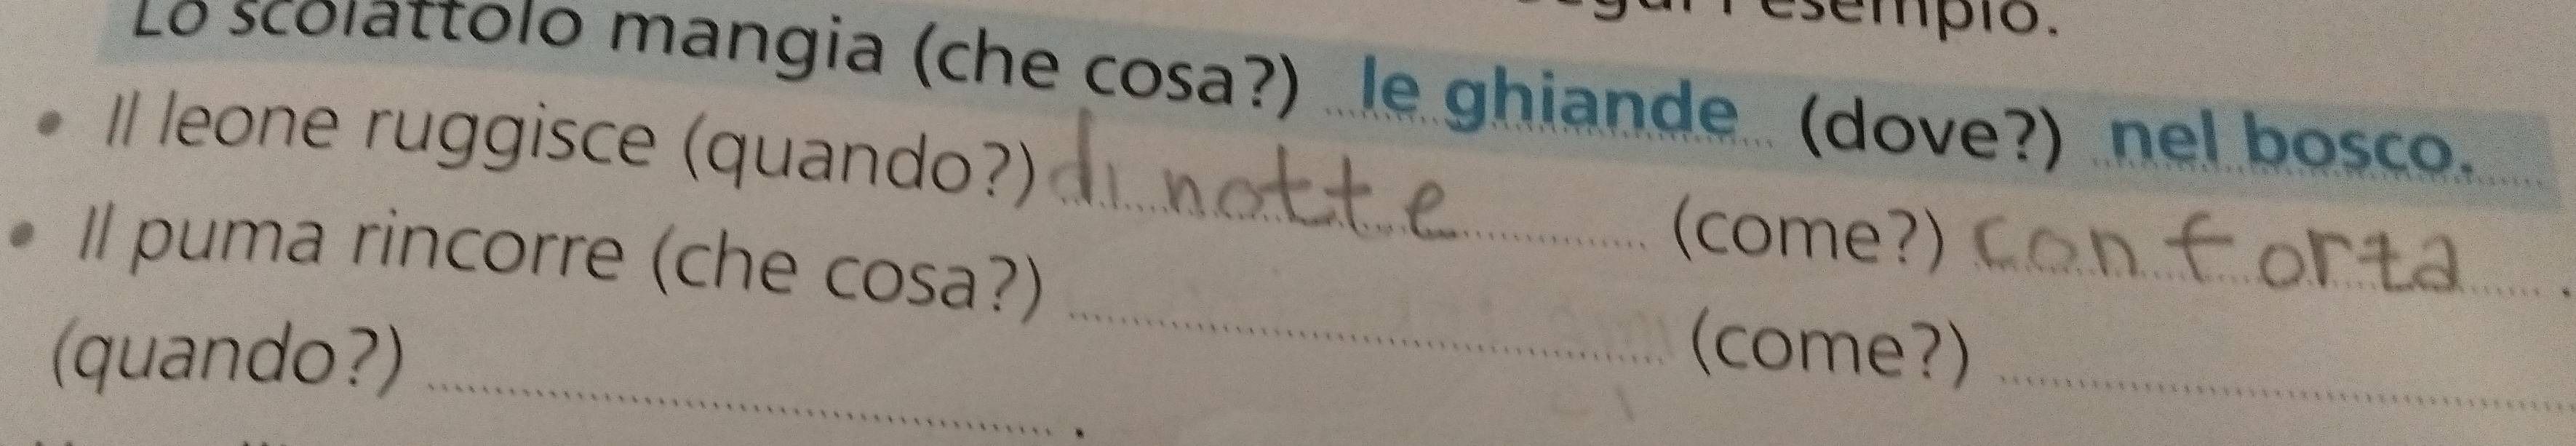 esempio.
Lo scoiattolo mangia (che cosa?) le ghiande (dove?) nel bosco.
• Il leone ruggisce (quando?) di notte (come?) con forta.
• Il puma rincorre (che cosa?) (come?)
(quando?) .